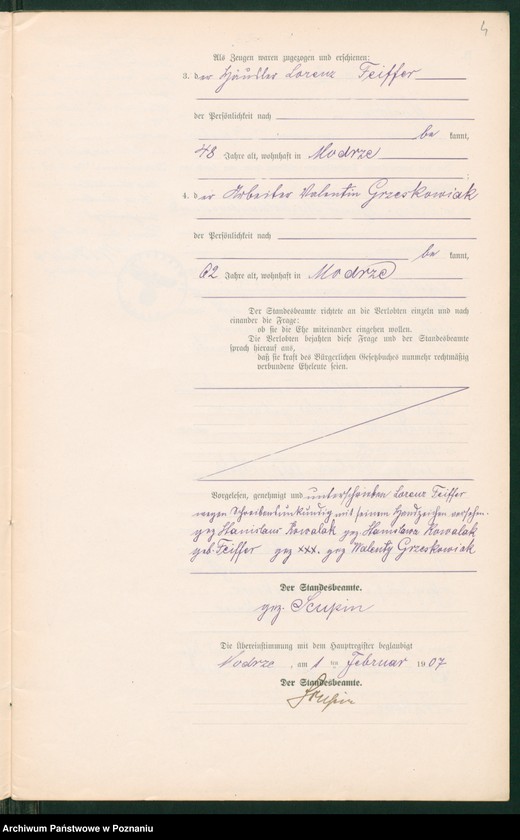 4
Als Zeugen waren zugezogen und erschienen:
3. der Häusler Lorenz Feiffer
der Persönlichkeit nach
be kannt,
48 Jahre alt, wohnhaft in Modrze
;
4. der Arbeiter Valentin Grzeskowiak
der Persönlichkeit nach
be kannt,
62 Jahre alt, wohnhaft in Modrze
Der Standesbeamte richtete an die Verlobten einzeln und nach
einander die Frage:
ob sie die Ehe miteinander eingehen wollen.
Die Verlobten bejahten diese Frage und der Standesbeamte
sprach hierauf aus,
daß sie kraft des Bürgerlichen Gesetzbuchs nunmehr rechtmäßig
verbundene Eheleute seien.
Vorgelesen, genehmigt und unterschrieben Lorenz Feiffer
wegen Schreibensunkundig mit seinem Handzeichen versehen.
gez Stanislaus Kowalak gez Stanislawa Kowalak
geb. Feiffer gez xxx. gez Walenty Grzeskowiak
Der Standesbeamte.
gez. Scupin
Die Übereinstimmung mit dem Hauptregister beglaubigt
Modrze, am 1 ten Februar 1907
Der Standesbeamte.
Scupin
Archiwum Państwowe w Poznaniu